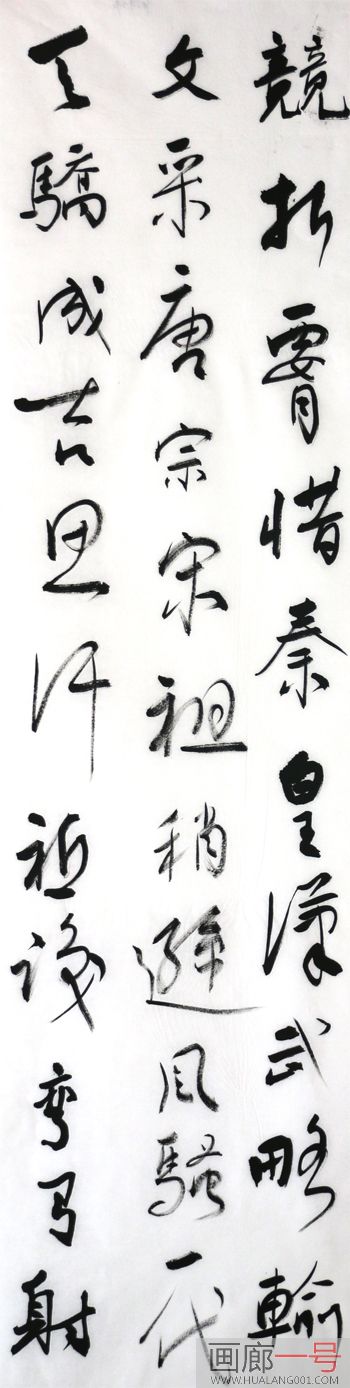 競折要惜秦皇漢武略輸
文采唐宗宋祖稍遜風騷一代
天驕成吉思汗祗識彎弓射
画廊一号
WWW.HUALANG001.COM